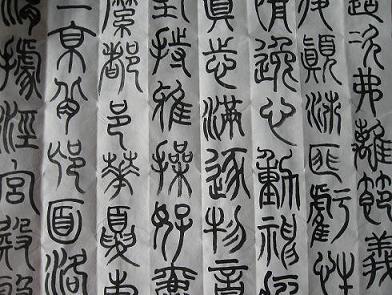 造次弗離節義
退顛沛匪虧性
情逸心動神疲
真志滿逐物意
堅持雅操好爵
縻都邑華夏東
二京背邙面洛
渭據涇宮殿盤